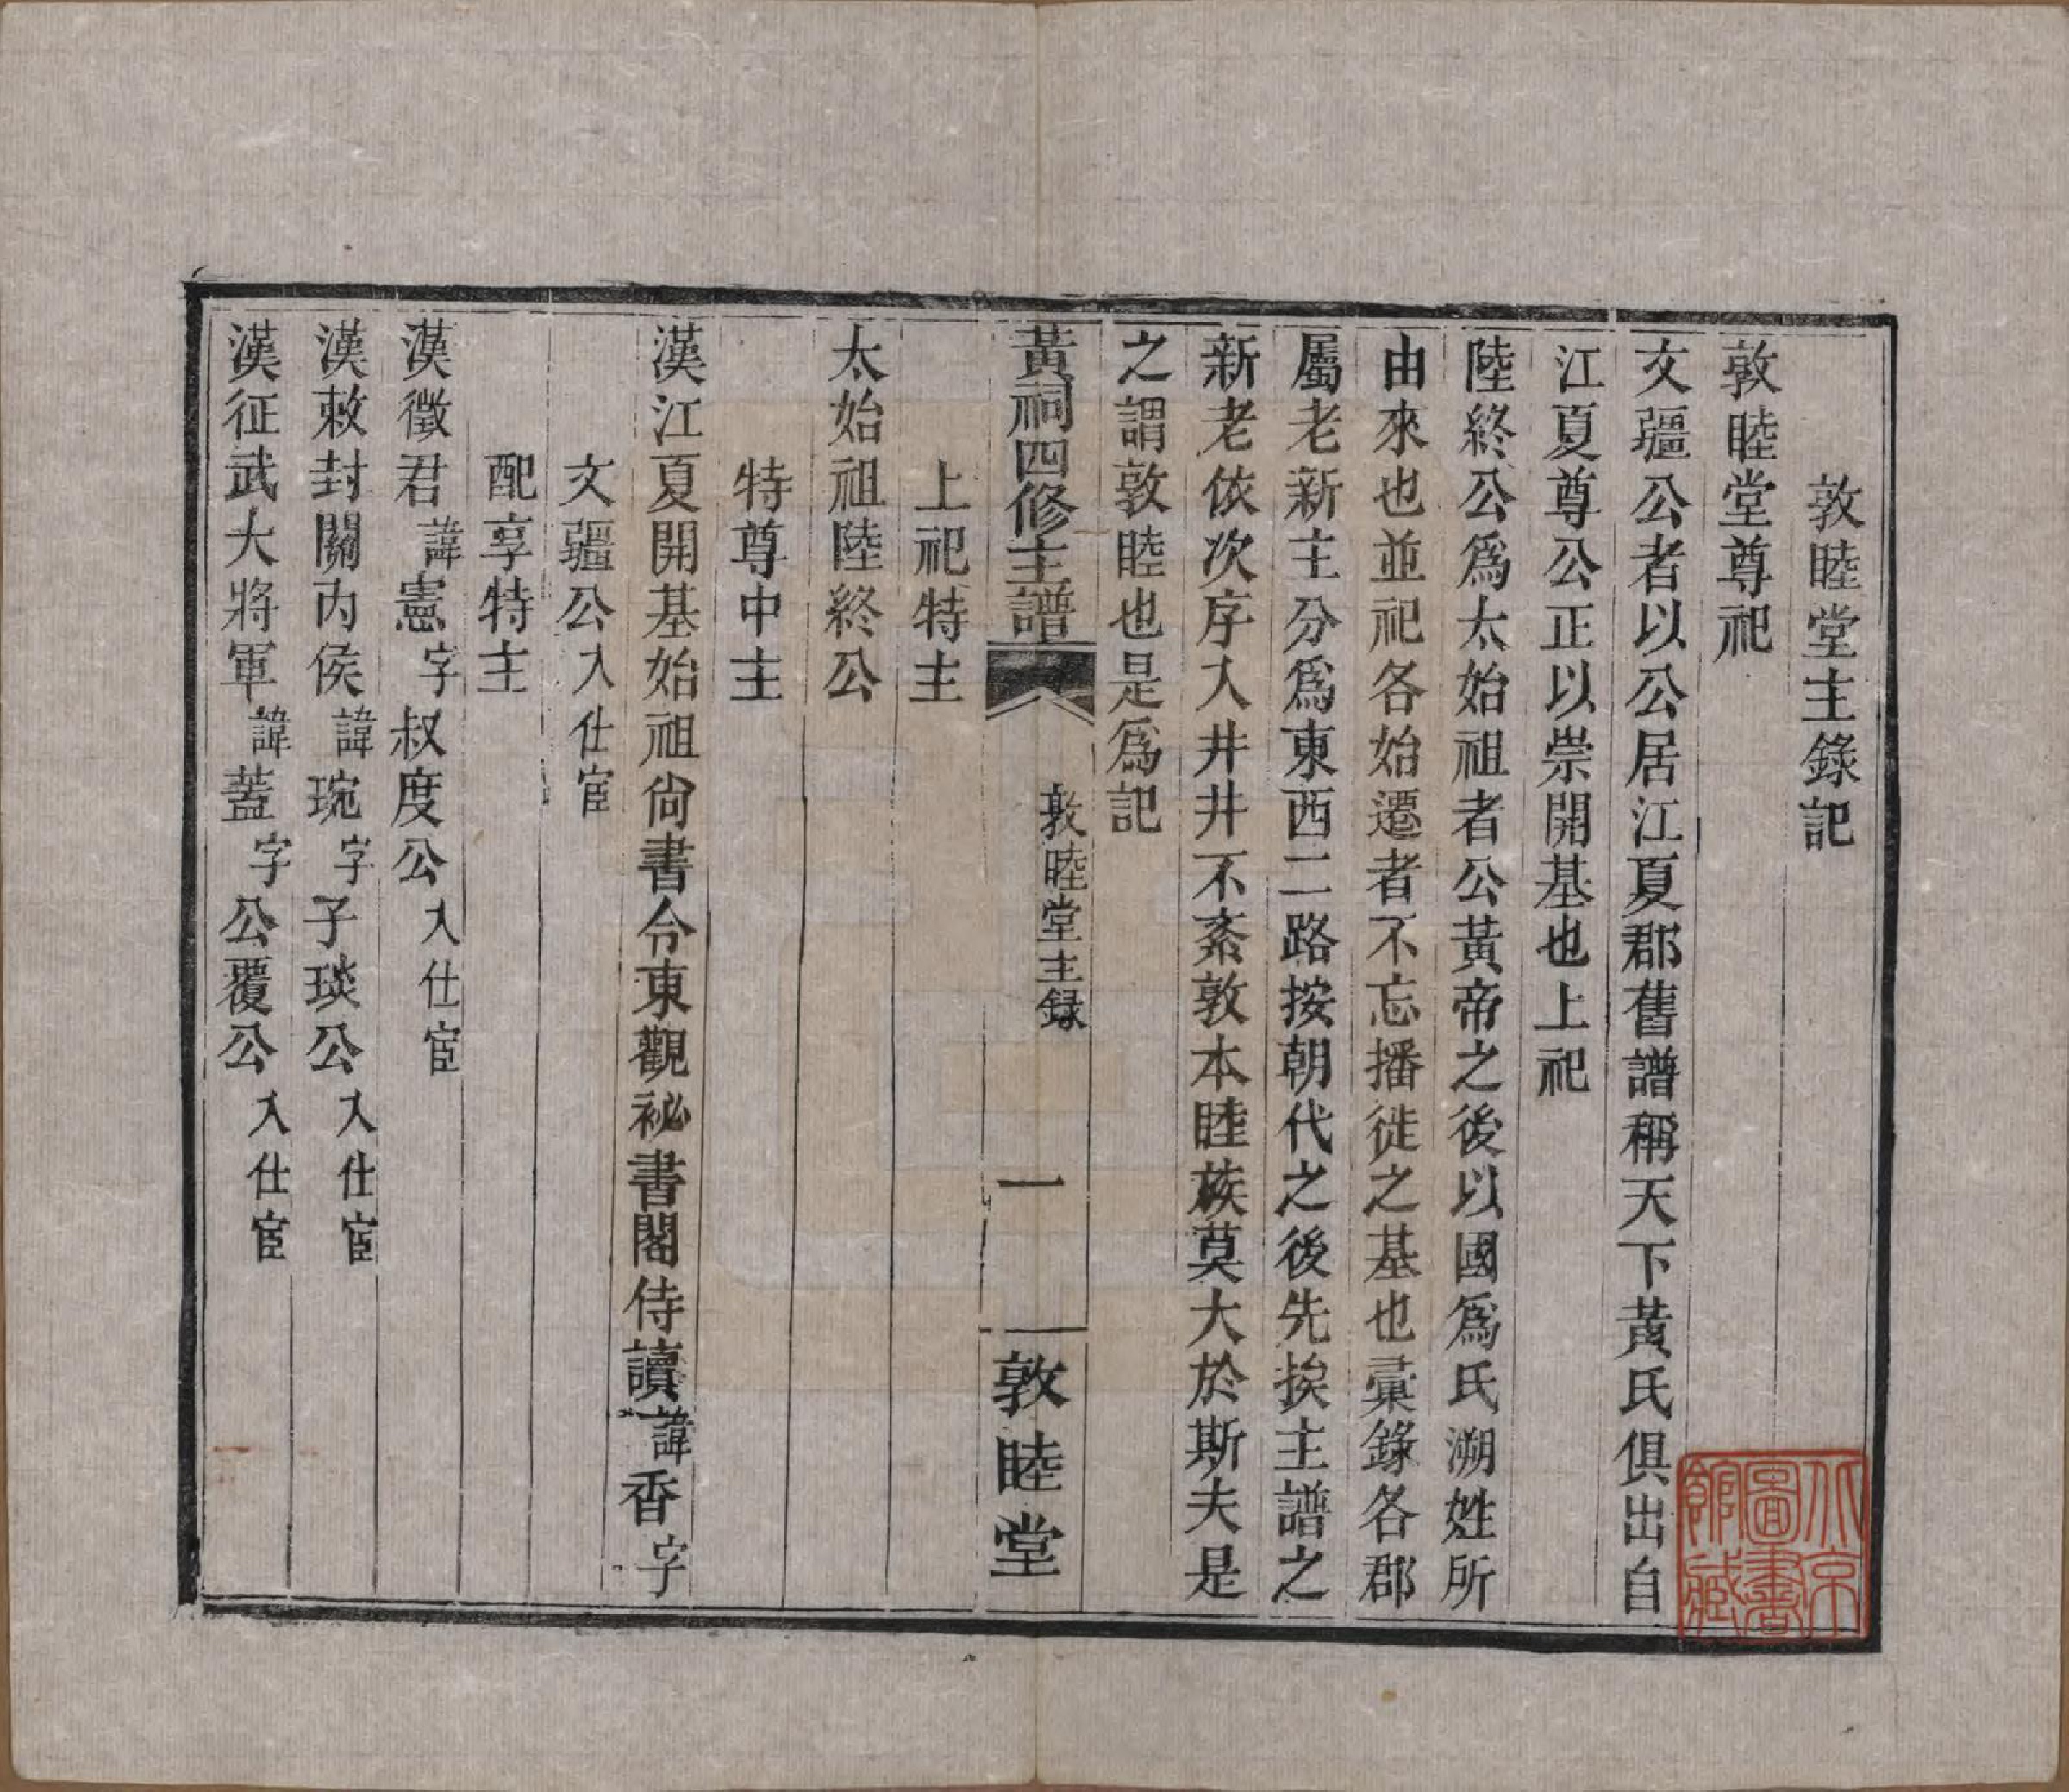 敦睦堂主錄記
敦睦堂尊祀
文疆公者以公居江夏郡舊譜稱天下黃氏俱出自
江夏尊公正以崇開基也上祀
陸終公爲太始祖者公黃帝之後以國爲氏溯姓所
由來也並祀各始遷者不忘播徙之基也彙錄各郡
屬老新主分爲東西二路按朝代之後先挨主譜之
新老依次序入井井不紊敦本睦族莫大於斯夫是
之謂敦睦也是爲記
黃祠四修主譜 敦睦堂主録 一 敦睦堂
上祀特主
太始祖陸終公
特尊中主
漢江夏開基始祖尙書令東觀祕書閣侍讀諱香字
文疆公入仕宦
配享特主
漢徵君諱憲字叔度公入仕宦
漢敕封關內侯諱琬字子琰公入仕宦
漢征武大將軍諱蓋字公覆公入仕宦
北京圖書館藏